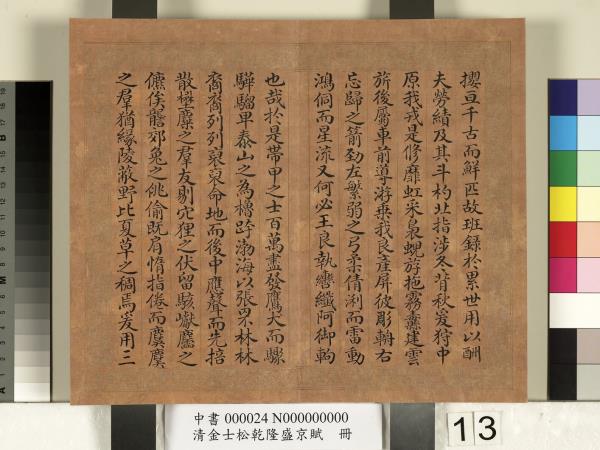 擾亘千古而鮮匹故班錄於累世用以酬
夫勞績及其斗杓北指涉冬背秋爰狩中
原我戎是修靡虹采梟蜺旌拖霧纛建雲
旂後屬車前導游乗我良產屏彼彫輈右
忘歸之箭勁左繁弱之弓柔倩浰而雷動
鴻侗而星流又何必王良執轡纖阿御軥
也哉於是帶甲之士百萬盡發鷹犬而驟
驊騮卑泰山之為櫓跨渤海以張罘林林
裔裔列列裒裒命地而後中應聲而先掊
散壄麋之羣友剔穴狸之伏留駭巘麢之
儦俟讋郊兔之佻偷既肩惰指倦而麌麌
之羣猶緣陵蔽野比夏草之稠焉爰用三
中書 000024 N000000000
清金士松乾隆盛京賦 冊
13